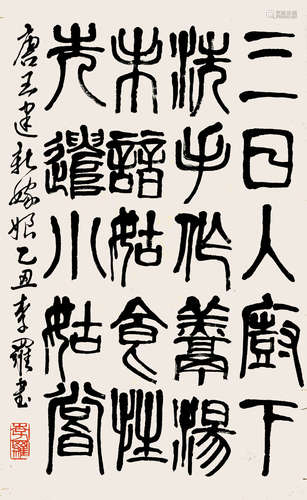 三日入廚下
洗手作羹湯
未諳姑食性
先遣小姑嘗
唐王建新嫁娘乙丑李羅書
李羅